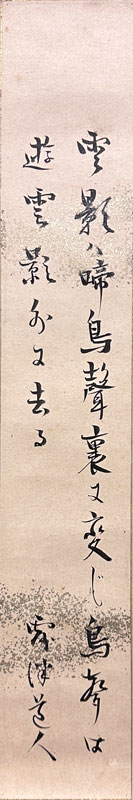 雲影ハ啼鳥聲裏に変じ鳥声は
遊雲影外に去る
道人